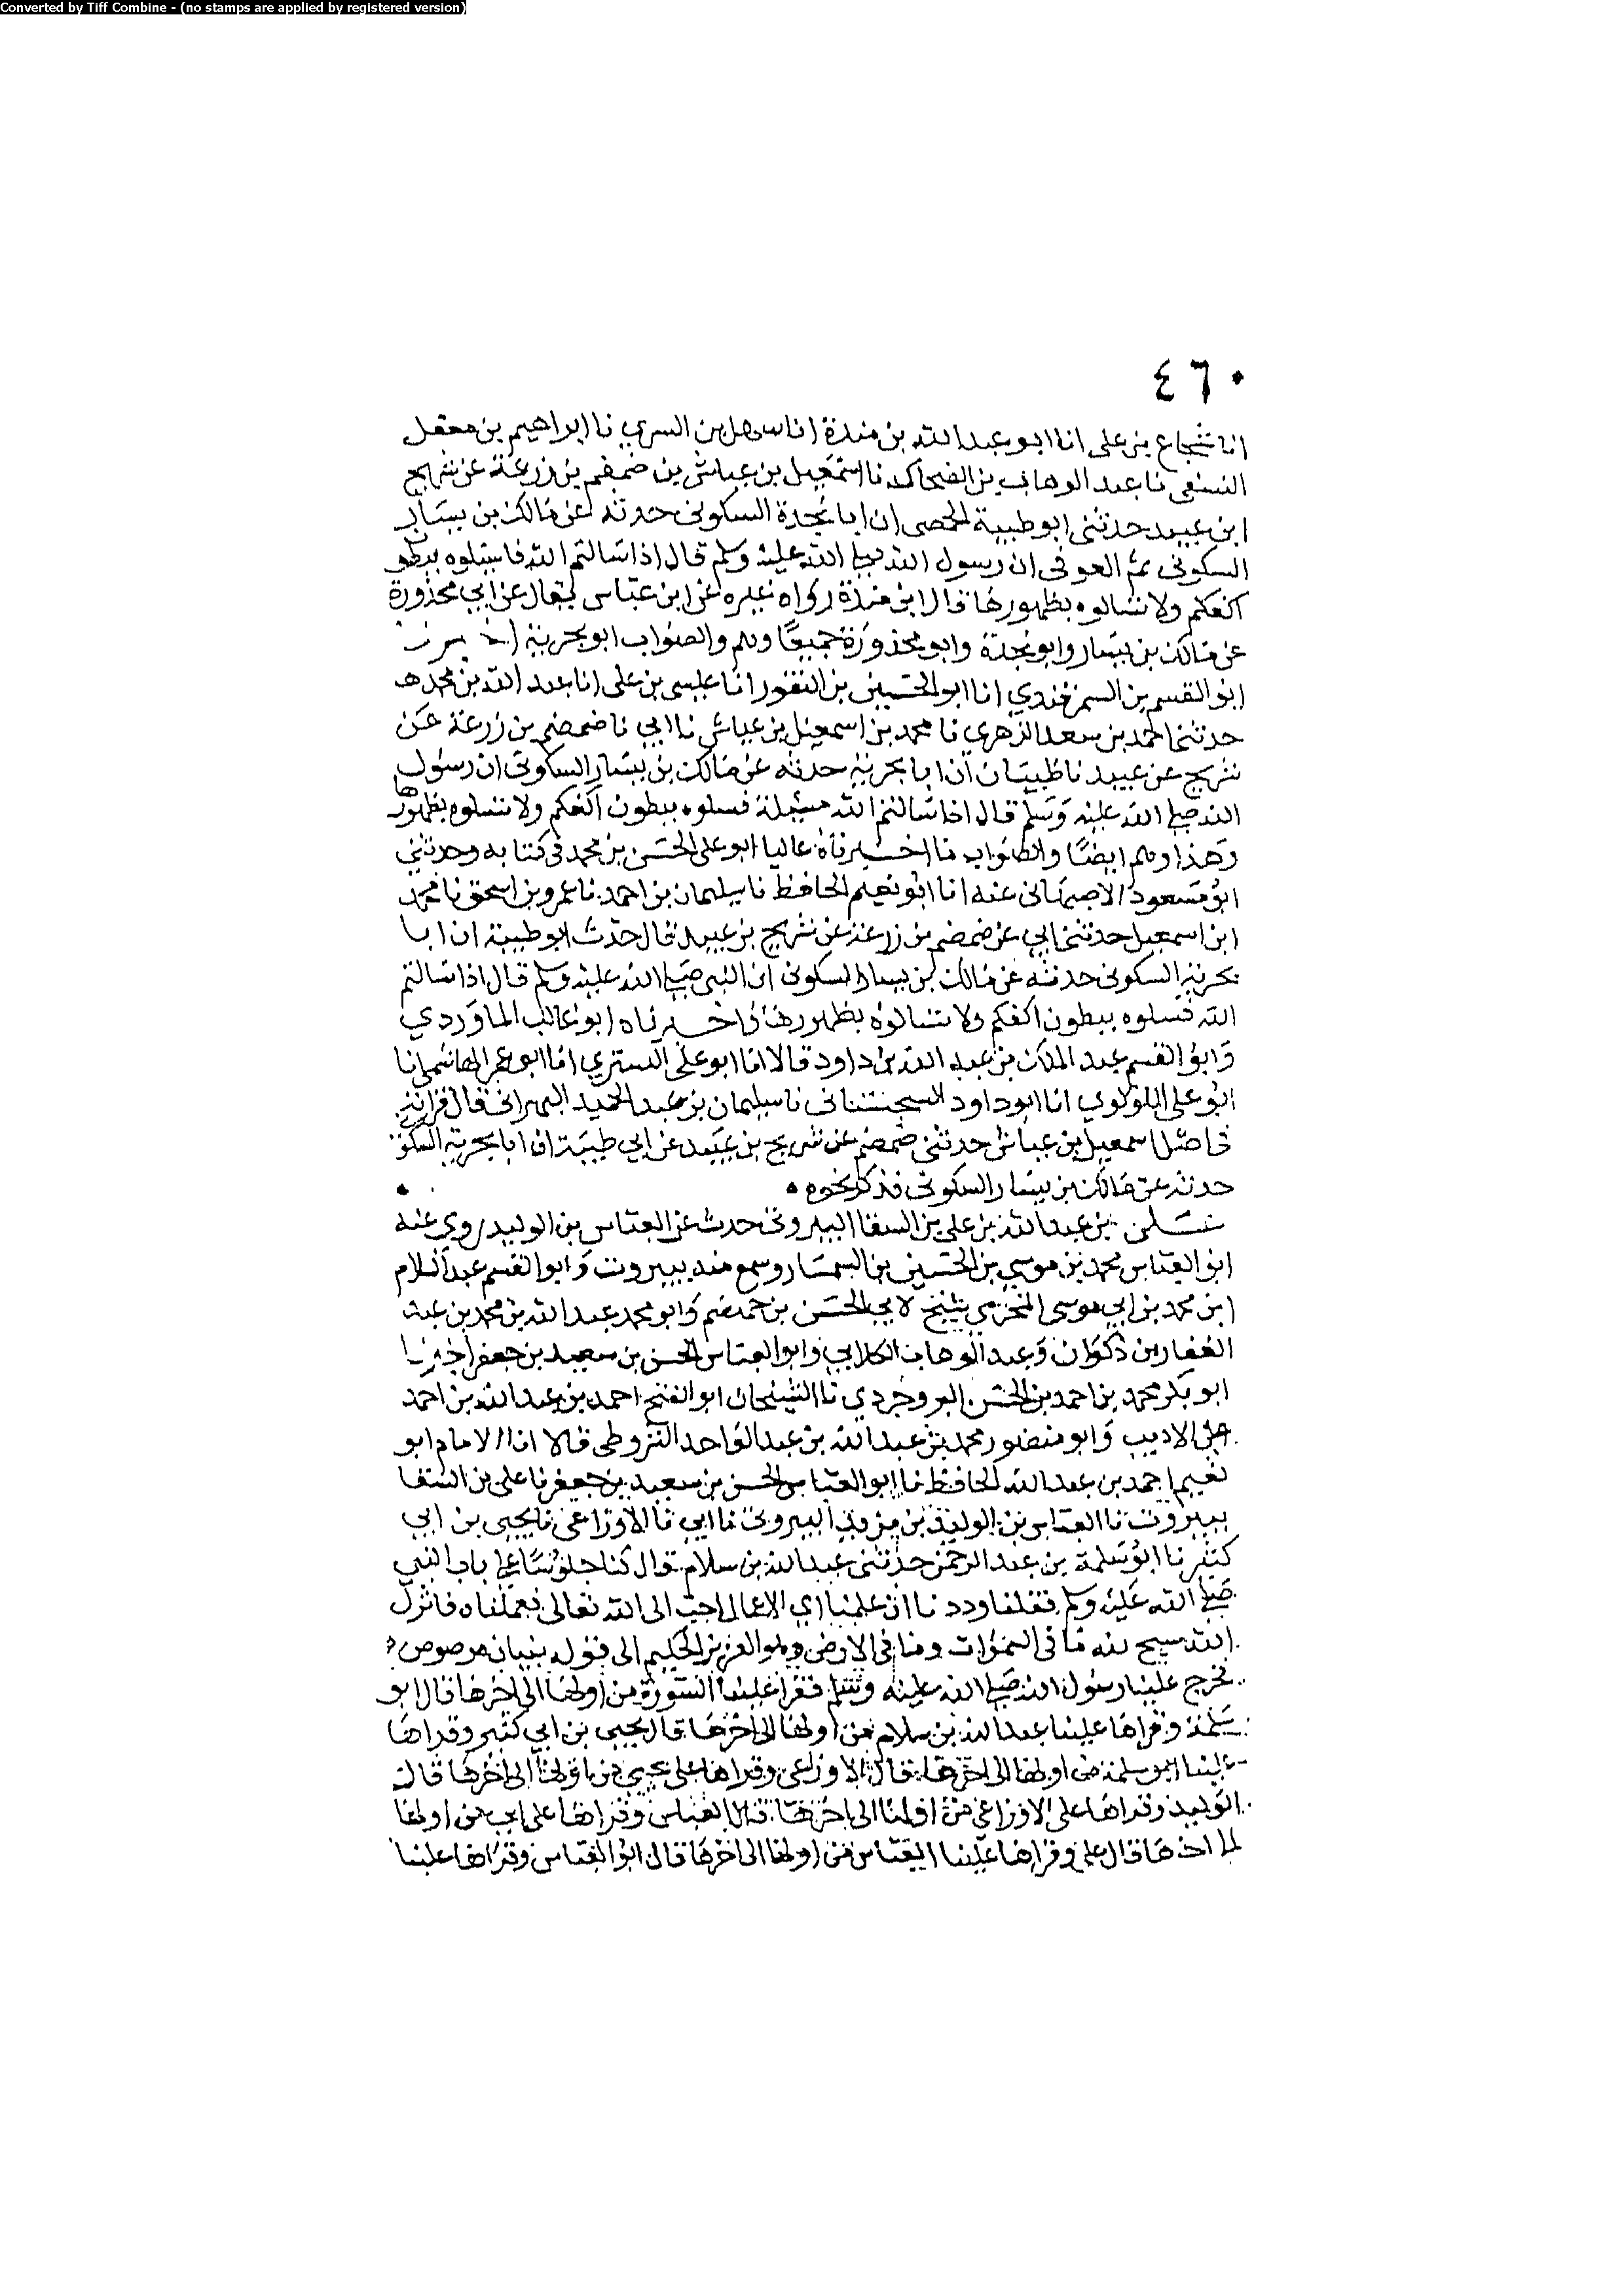 Converted by Tiff Combine - (no stamps are applied by registered version)
٤٦٠
انا شجاع بن على انا ابو عبد الله بن مندة انا سهل بن السري نا ابراهيم بن معقل
النسفى نا عبد الوهاب بن الضحاك نا اسمعيل بن عياش بن ضمضم بن زرعة عن شريح
ابن عبيد حدثنى ابو طبية الحمصى ان ابا نجدة السكونى حدثه عن مالك بن يسار
السكونى ثم العوفى ان رسول الله صلى الله عليه وسلم قال اذا سالتم الله فاسئلوه ببطون
اكفكم ولا تسالوه بظهورها قال ابن مندة رواه غيره عن ابن عياش فقال عن ابي محذورة
عن مالك بن يسار وابو نجدة وابو محذورة جميعا وهم والصواب ابو بحرية
ابو القسم بن السمرقندي انا ابو الحسين بن النقور انا عيسى بن على انا عبد الله بن محمد
حدثنا احمد بن سعد الزهرى نا محمد بن اسمعيل بن عياش نا ابي نا ضمضم بن زرعة عن
شريح عن عبيد نا ظبيان ان ابا بحرية حدثه عن مالك بن يسار السكونى ان رسول
الله صلى الله عليه وسلم قال اذا سالتم الله مسئلة فسلوه ببطون اكفكم ولا تسلوه بظهورها
وهذا وهم ايضا والصواب ما اخبرناه عاليا ابو على الحسن بن محمد فى كتابه وحدثني
ابو مسعود الاصبهانى عنه انا ابو نعيم الحافظ نا سليمان بن احمد نا عمرو بن اسحق نا محمد
ابن اسمعيل حدثنى ابي عن ضمضم بن زرعة عن شريح بن عبيد قال حدث ابو طبية ان ابا
بحرية السكونى حدثه عن مالك بن يسار السكونى ان النبى صلى الله عليه وسلم قال اذا سالتم
الله فسلوه ببطون اكفكم ولا تسالوه بظهورها واخبرناه ابو غالب الماوردي
وابو القسم عبد الملك بن عبد الله بن داود قالا انا ابو على التستري انا ابو عمر الهاشمى انا
ابو على اللولوي انا ابو داود السجستانى نا سليمان بن عبد الحميد البهرانى قال قراته
فى اصل اسمعيل بن عياش حدثنى ضمضم عن شريح بن عبيد عن ابي طبية ان ابا بحرية السكونى
حدثه عن مالك بن يسار السكونى فذكر نحوه
بن عبد الله بن على بن السفا البيروتى حدث عن العباس بن الوليد روي عنه
ابو العباس محمد بن موسى بن الحسين بن السمسار وسمع منه ببيروت وابو القسم عبد السلام
ابن محمد بن ابي موسى المخرمي شيخ لابي الحسن بن جهضم وابو محمد عبد الله بن محمد بن عبد
الغفار بن ذكوان وعبد الوهاب الكلابي وابو العباس الحسن بن سعيد بن جعفر اخبرنا
ابو بكر محمد بن احمد بن الحسن البروجردي نا الشيخان ابو الفتح احمد بن عبد الله بن احمد
الاديب وابو منصور محمد بن عبد الله بن عبد الواحد الشروطى قالا انا الامام ابو
نعيم احمد بن عبد الله الحافظ نا ابو العباس الحسن بن سعيد بن جعفر نا على بن السفا
ببيروت نا العباس بن الوليد بن مزيد البيروتى نا ابي نا الاوزاعى نا يحيى بن ابي
كثير نا ابو سلمة بن عبد الرحمن حدثنى عبد الله بن سلام قال كنا جلوسا على باب النبي
صلى الله عليه وسلم فقلنا وددنا ان علمنا اي الاعمال احب الى الله تعالى فعملناه فانزل
الله سبح لله ما فى السموات وما فى الارض وهو العزيز الحكيم الى قوله بنيان مرصوص
فخرج علينا رسول الله صلى الله عليه وسلم فقرا علينا السورة من اولها الى اخرها قال ابو
سلمة وقراها علينا عبد الله بن سلام من اولها الى اخرها قال يحيى بن ابي كثير وقراها
علينا ابو سلمة من اولها الى اخرها فقال الاوزاعى وقراها على يحيى من اولها الى اخرها قال
الوليد وقراها على الاوزاعى من اولها الى اخرها قال العباس وقراها على ابي من اولها
الى اخرها قال على وقراها علينا العباس من اولها الى اخرها قال ابو العباس وقراها علينا